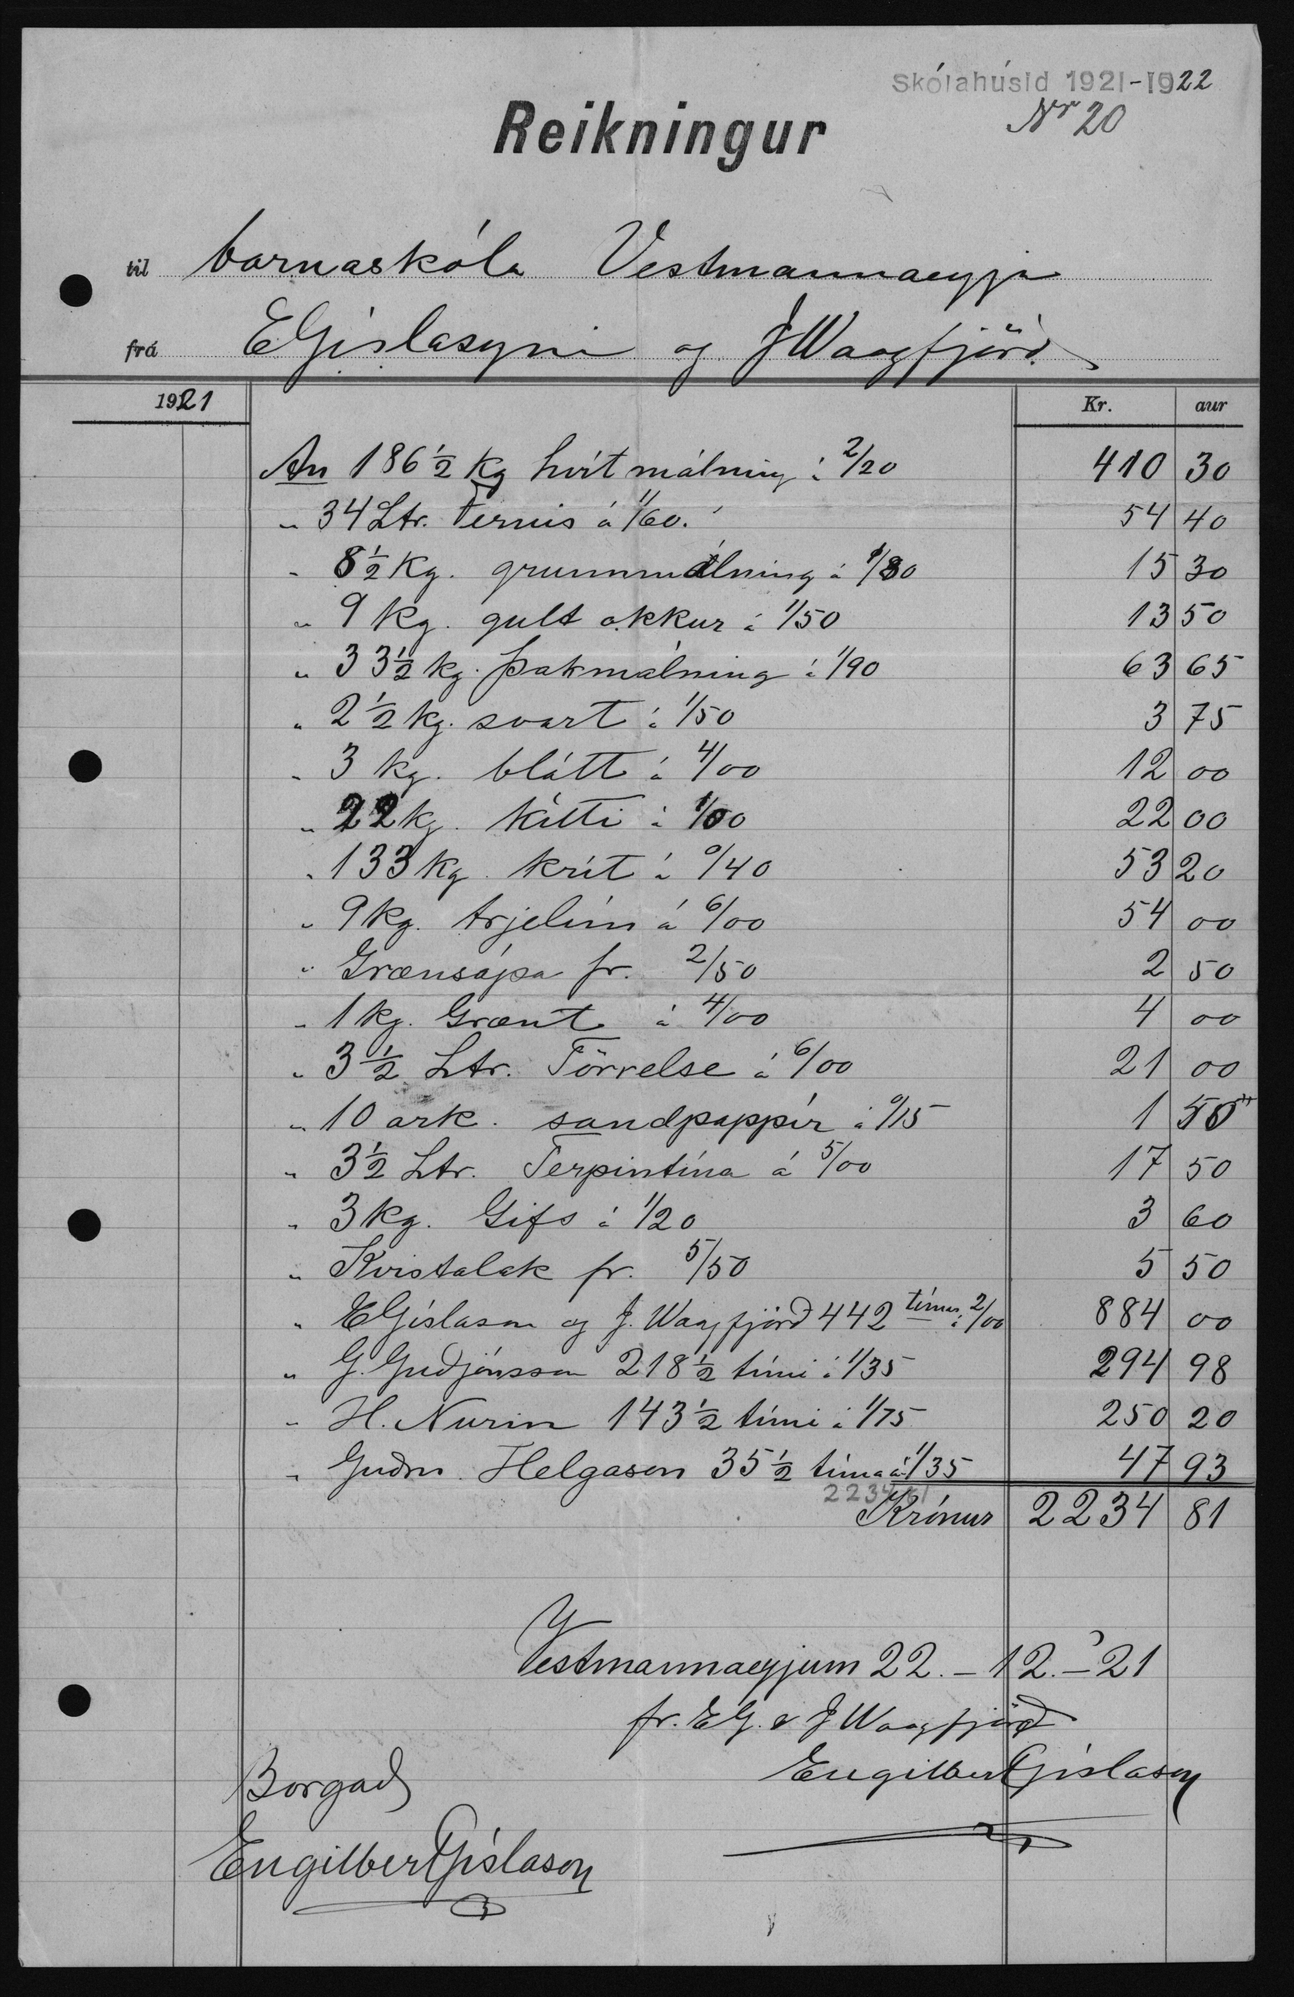 Skólahúsið 1921-1922
Nr 20
Reikningur
til barnaskóla Vestmannaeyja
frá EGíslasyni og JWaagfjörð
1921 Kr. aur
An 186 1/2 kg hvít málning á 2/20 410 30
" 34 Ltr. Fernis á 1/60. 54 40
" 8 1/2 Kg. grunnmálning á 1/80 15 30
" 9 kg. gult okkur á 1/50 13 50
" 33 1/2 kg. þakmálning á 1/90 63 65
" 2 1/2 kg. svart á 1/50 3 75
" 3 kg. blátt á 4/00 12 00
" 22 kg. kítti á 1/00 22 00
" 133 kg krít á 0/40 53 20
" 9 kg. trjelím á 6/00 54 00
" Grænsápa fr. 2/50 2 50
" 1 kg. Grænt á 4/00 4 00
" 3 1/2 Ltr. Törrelse á 6/00 21 00
" 10 ark. sandpappír á 0/15 1 50
" 3 1/2 Ltr. Terpintína á 5/00 17 50
" 3 kg. Gifs á 1/20 3 60
" Kvistalak fr. 5/50 5 50
" EGíslason og J. Waagfjörð 442 tímar á 2/00 884 00
" G. Guðjónsson 218 1/2 tími á 1/35 294 98
" H. Nurin 143 1/2 tími á 1/75 250 20
" Guðm. Helgason 35 1/2 tíma á 1/35 47 93
2234 81
Krónur 2234 81
Vestmannaeyjum 22. - 12. - 21
fr. EG. & JWaagfjörð
Engilbert Gíslason
Borgað
Engilbert Gíslason